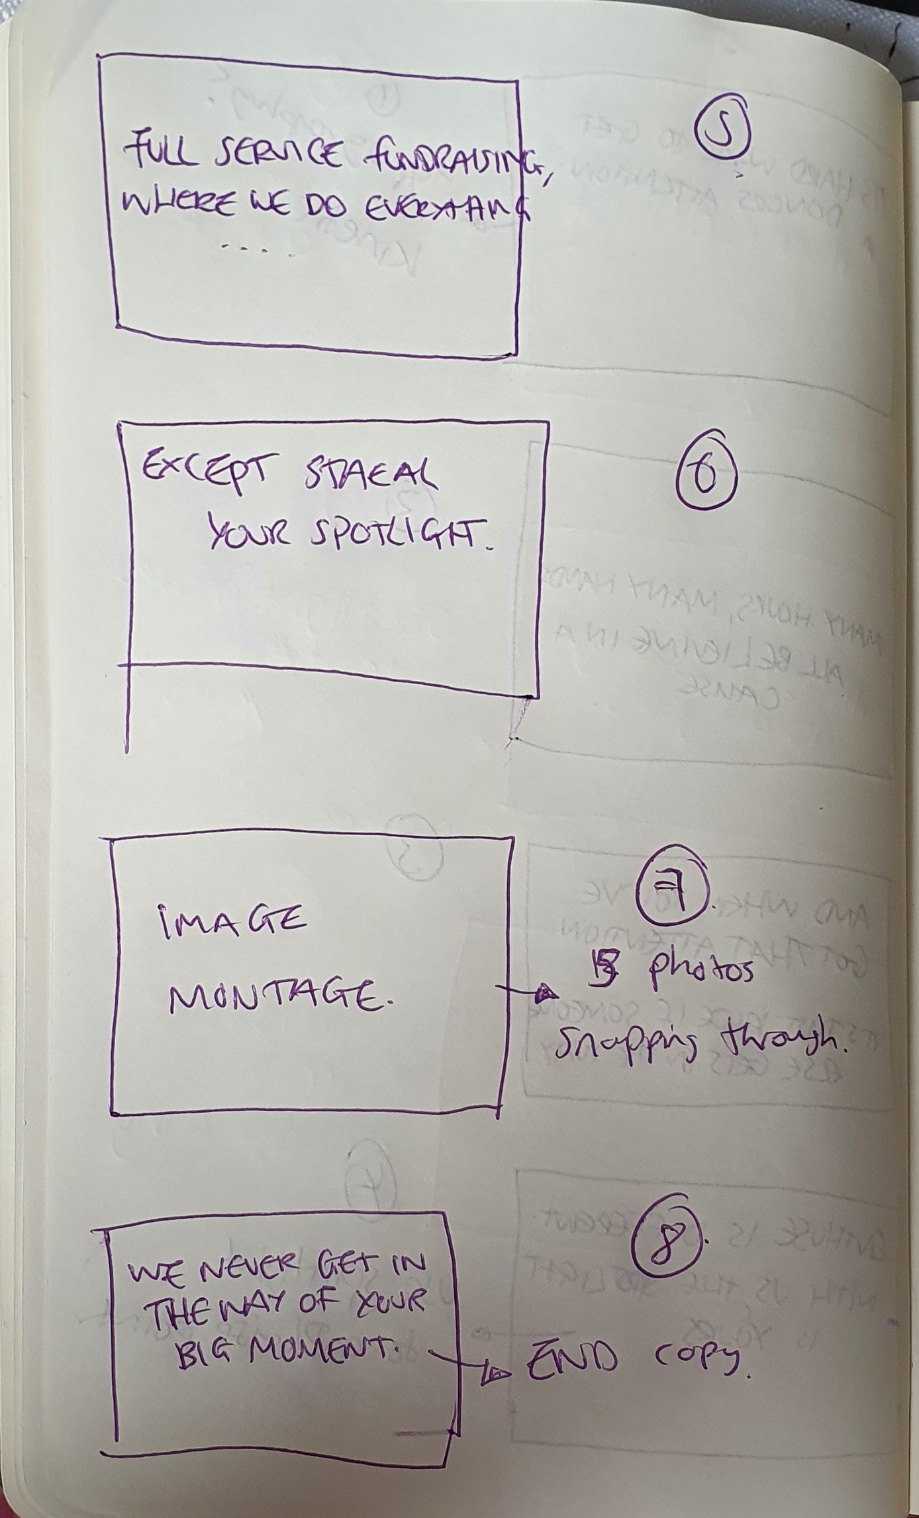 5
FULL SERVICE FUNDRAISING,
WHERE WE DO EVERYTHING
....
6
EXCEPT STAEAL
YOUR SPOTLIGHT.
7.
IMAGE
MONTAGE.
photos
snapping through.
8.
WE NEVER GET IN
THE WAY OF YOUR
BIG MOMENT.
END copy.